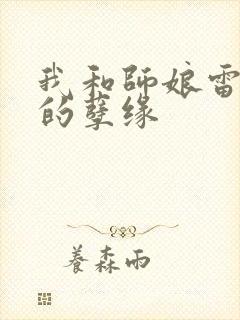 我和師娘雷
的孽缘
養森雨